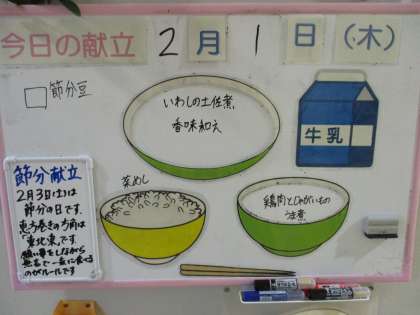 今日の献立 2月1日(木)
節分豆
いわしの土佐煮
香味和え
牛乳
菜めし
鶏肉とじゃがいもの
うま煮
節分献立
2月3日(土)は
節分の日です。
恵方巻きの方角は
「東北東」です。
願い事をしながら
無言で一気に食べる
のがルールです